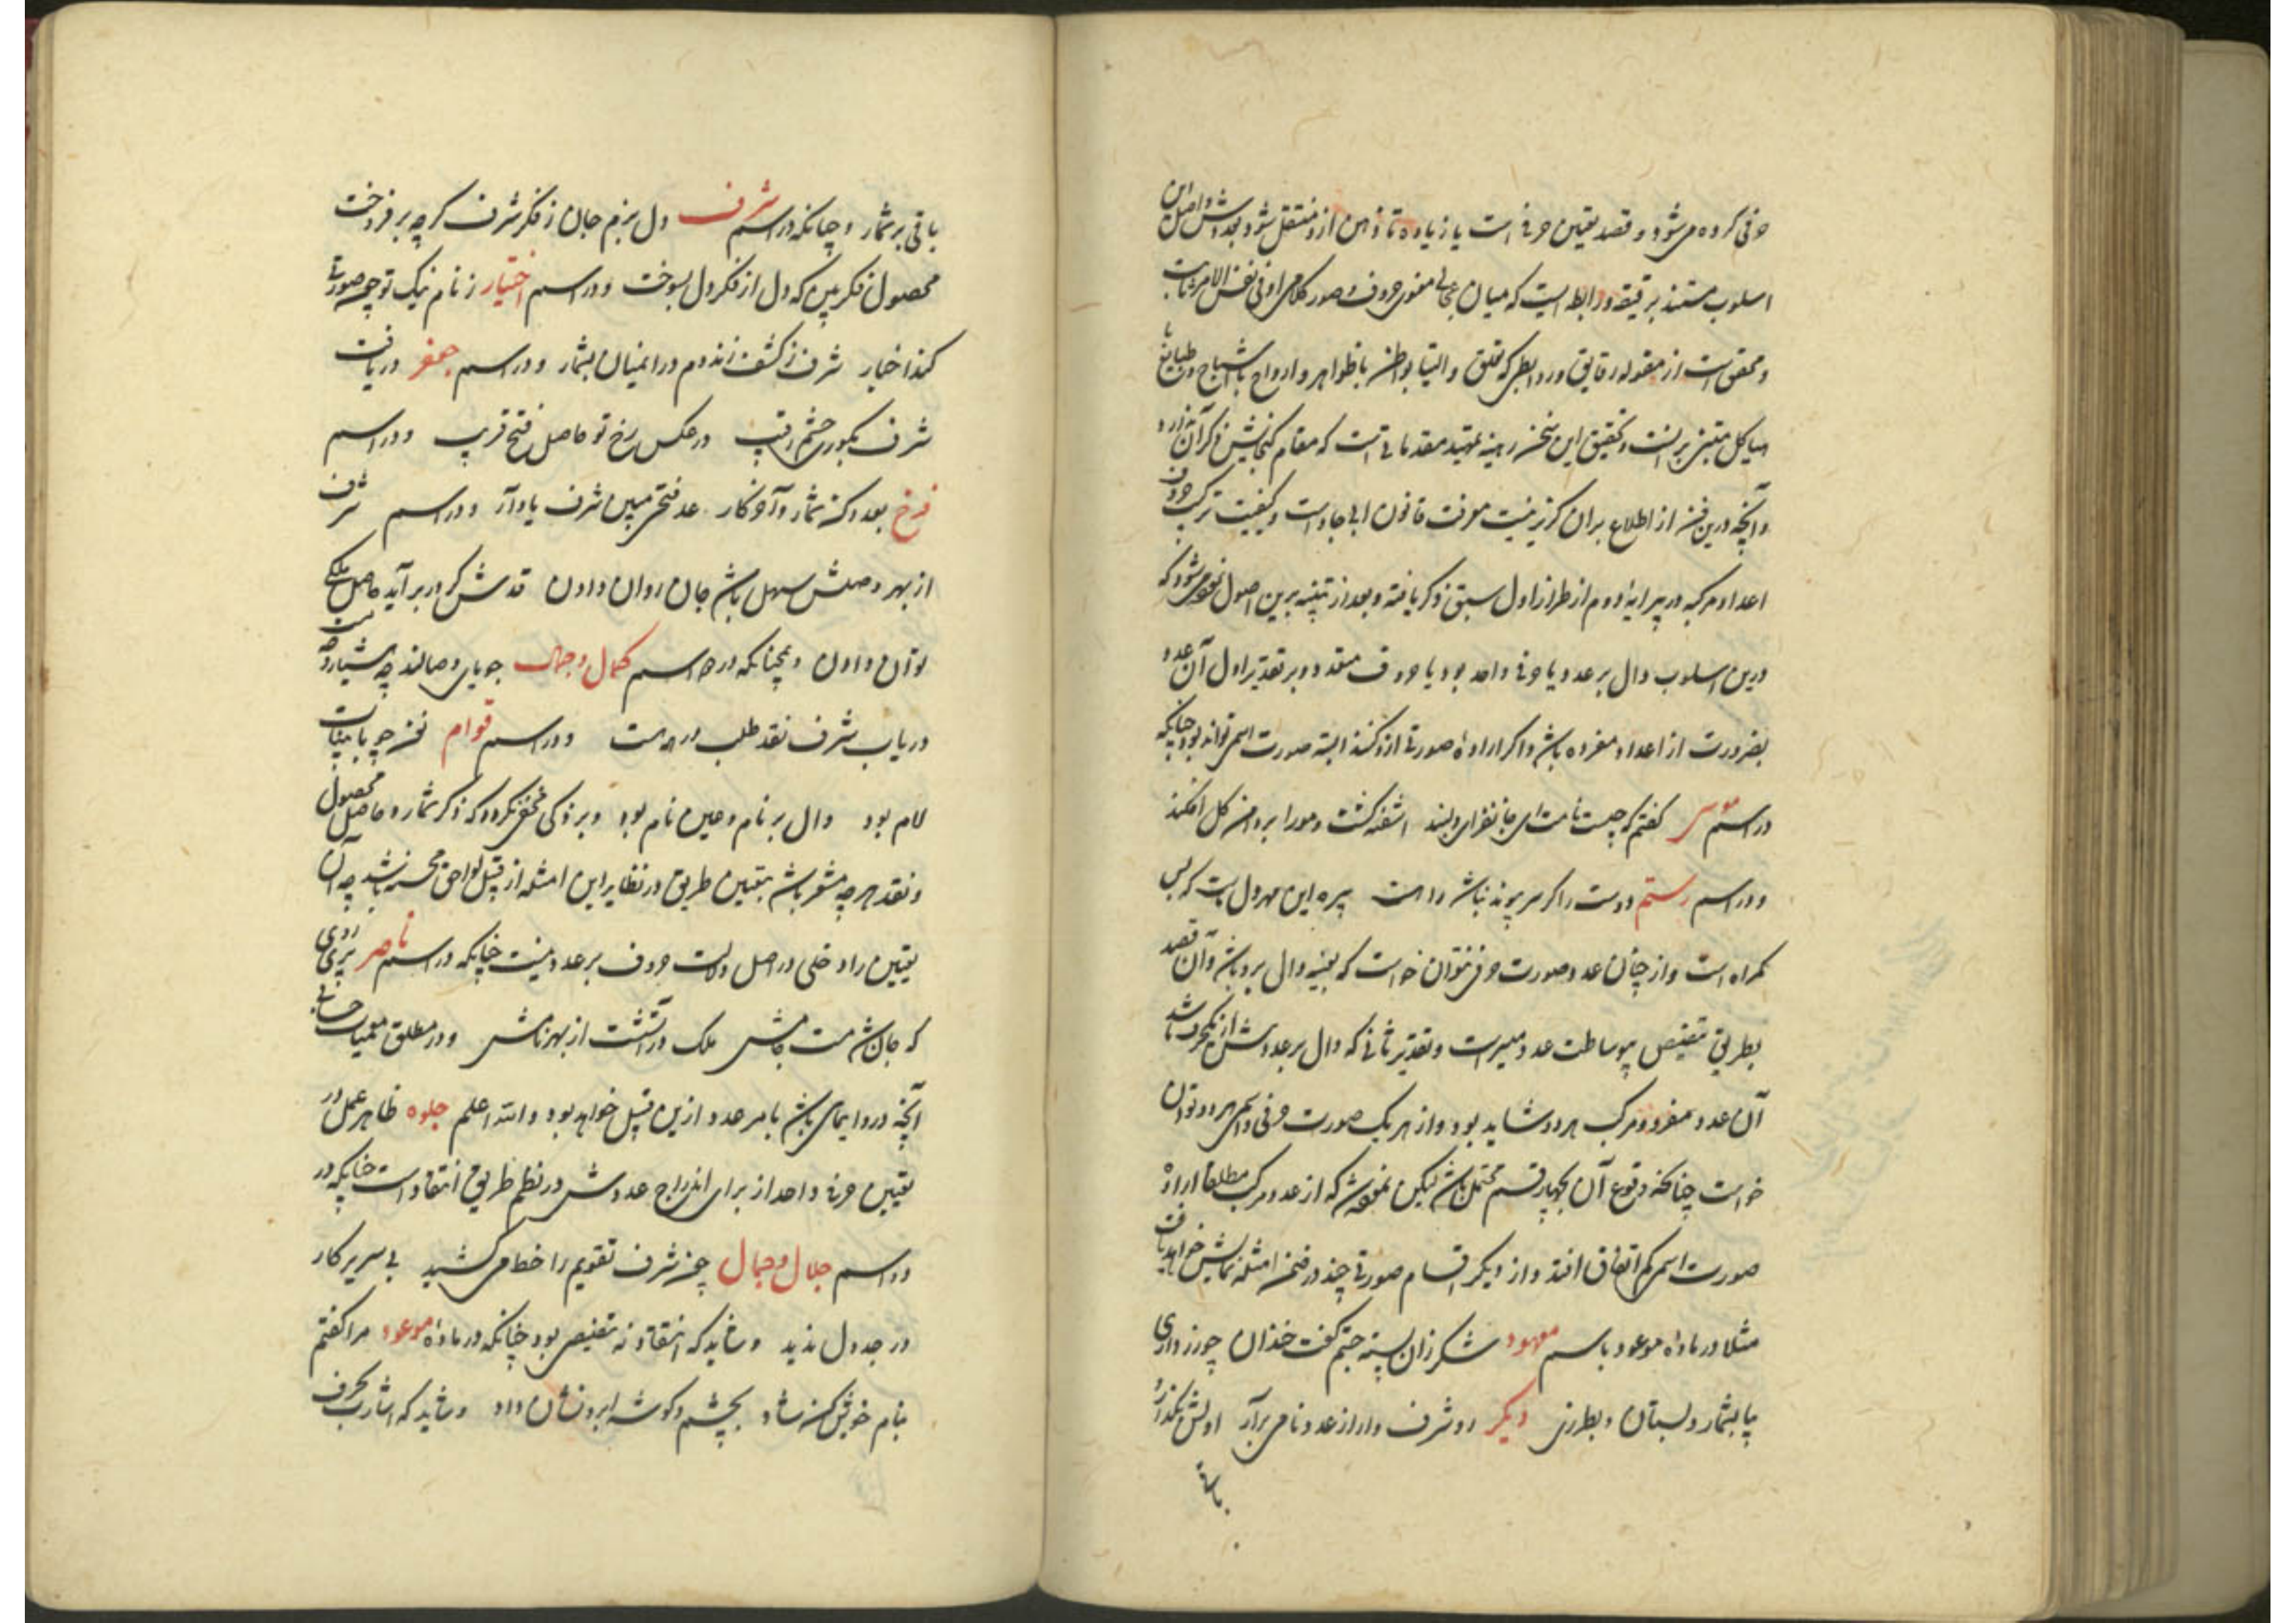 حرفی کرده می‌شود و قصد تعیین حرفی است یا زیاده تا ذهن ازو منتقل شود بعددش و اصل این
اسلوب مستند برقیقه و رابطه ایست که میان عجالی معنوی حروف و صور کلامی او فی نفس الامر ثابت
و محقق است از مقوله رقایق و روابط که تعلق و التیا بواطن با ظواهر و ارواح با اشباح و طبایع با
هیاکل مبتنی بر آنست و تحقیق این سخن رهینه تمهید مقدماتی است که مقام گنجایش ذکر آن ندارد
و آنچه درین فن از اطلاع بران گریز نیست معرفت قانون ابجاد است و کیفیت ترکیب حروف
اعداد مرکبه در پیرایهٔ دوم از طراز اول سبق ذکر یافته و بعد از تنبیه برین اصول نموده می‌شود که
درین اسلوب دال بر عدد یا حرفی واحد بود یا حروف متعدد و بر تقدیر اول آن عدد
بضرورت از اعداد مفرده باشد و اگر ارادهٔ صورتی ازو کنند البته صورت اسمی تواند بود چنانکه
در اسم موسی گفتم که چیست نامت ای جانفزای دلبند اشفته گشت و مو را بر دامن گل افکند
و در اسم رستم دوست را گر سر پیوند نباشد راهست پیره این مهر دل ماست که بس
گمراه است و از چنان عدد صورت حرفی نتوان خواست که بعینه دال برو باشد و آن قصد
بطریق تنصیص بیوساطت عدد میسرست و بتقدیر ثانی که دال بر عدد بیش از یکحرف باشد
آن عدد مفرد و مرکب هر دو شاید بود و از هر یک صورت حرفی و اسمی هر دو توان
خواست چنانکه وقوع آن بچهار قسم محتمل باشد لیکن نموده شد که از عدد مرکب مطلقا ارادهٔ
صورت اسم کم اتفاق افتد و از دیگر اقسام صورتی چند در ضمن امثله نمایش خواهد یافت
مثلا در مادهٔ موعود باسم معهود شکر زان پسته جستم گفت خندان چو زر داری
بیا بشمار و بستان و بطرزی دیگر رو شرف وار از عدد نامی برآر اولش بگذار و
باقی
باقی بر شمار و چنانکه در اسم شرف دل بزم جان ز فکر شرف گرچه بر فروخت
محصول فکر بین که دل از فکر دل بسوخت و در اسم اختیار ز نام نیک تو چو صورتی
کند اخبار شرف ز گشت زند دم درانمیان بشمار و در اسم جعفر دریافت
شرف بکوری چشم رقیب در عکس رخ تو حاصل فتح قریب و در اسم
فرخ بعد و کنه شمار و آخر کار عد فتحی مبین شرف یاد آر و در اسم شرف
از بهر وصلش سهل باشد جان روان دادن قدش گر در بر آید حاصل ملکی
توان دادن و همچنانکه در دو اسم کمال و جمال جویای وصالند چه هشیار و چه مست
دریاب شرف نقد طلب در همه هست و در اسم قوام نفر چو با بینات
لام بود دال بر نام و عین نام بود و بر ذکی مخفی نگردد که ذکر شمار و حاصل و محصول
و نقد هر چه مشعر باشد بتعیین طریق در نظایر این امثله از قبیل لواحق محسنه باشد چه آن
تعیین را دخلی در اصل دلالت حروف بر عدد نیست چنانکه در اسم ناصر پری روی
که جان شد مست جامش ملک در آتشست از بهر نامش و در مطلق معمیات حسابی
آنچه درو ایمای باشد بامر عدد ازین قبیل خواهد بود و الله اعلم جلوه ظاهر عمل در
تعیین حرفی واحد از برای اندراج عددش در نظم طریق انتقاد است چنانکه در
دو اسم جلال و جمال چون شرف تقویم را خط می کشید بی سر پر کار
در جدول ندید و شاید که انتقاد نه تنصیص بود چنانکه در مادهٔ موعود مرا گفتم
بنام خویش کن شاد بچشم و گوشه ابرو نشان داد و شاید که اشارت بحرف